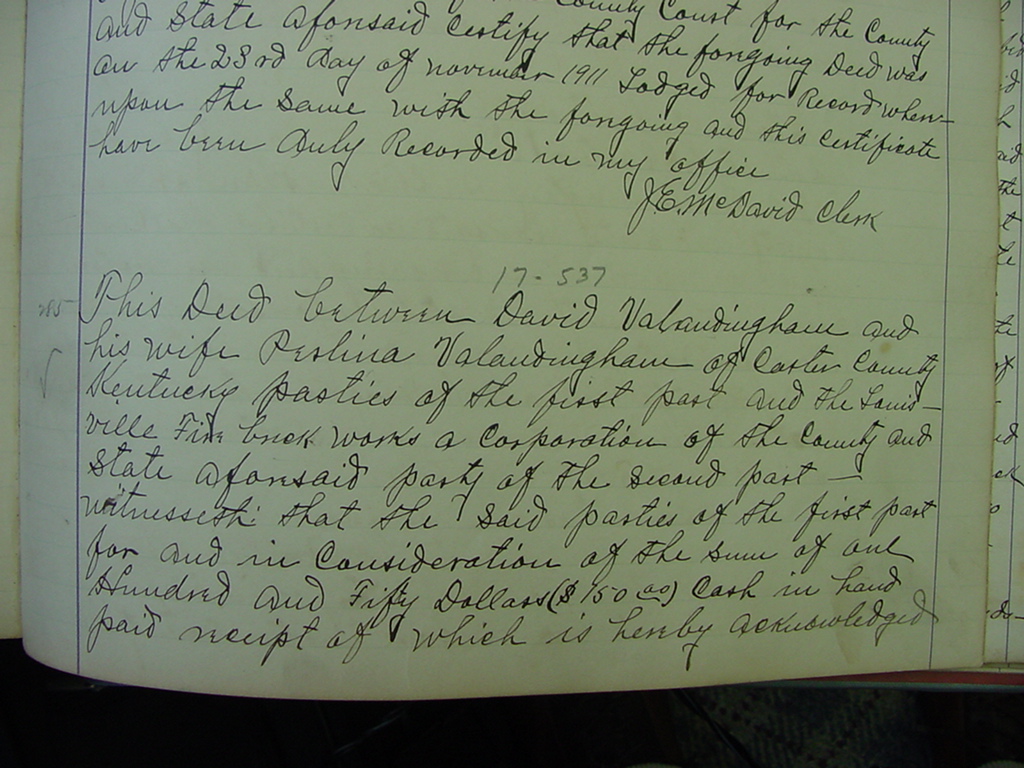 County Court for the County
and State aforesaid certify that the forgoing Deed was
on the 23rd day of november 1911 Lodged for Record when-
upon the Same with the forgoing and this certificate
have been duly Recorded in my office
J.E. McDavid Clerk
17-537
285 This Deed between David Valandingham and
his wife Perlina Valandingham of Carter County
Kentucky parties of the first part and the Louis-
ville Fire brick works a corporation of the County and
State aforesaid party of the second part —
witnesseth: that the said parties of the first part
for and in Consideration of the sum of one
Hundred and Fifty Dollars ($150.00) Cash in hand
paid receipt of which is hereby acknowledged